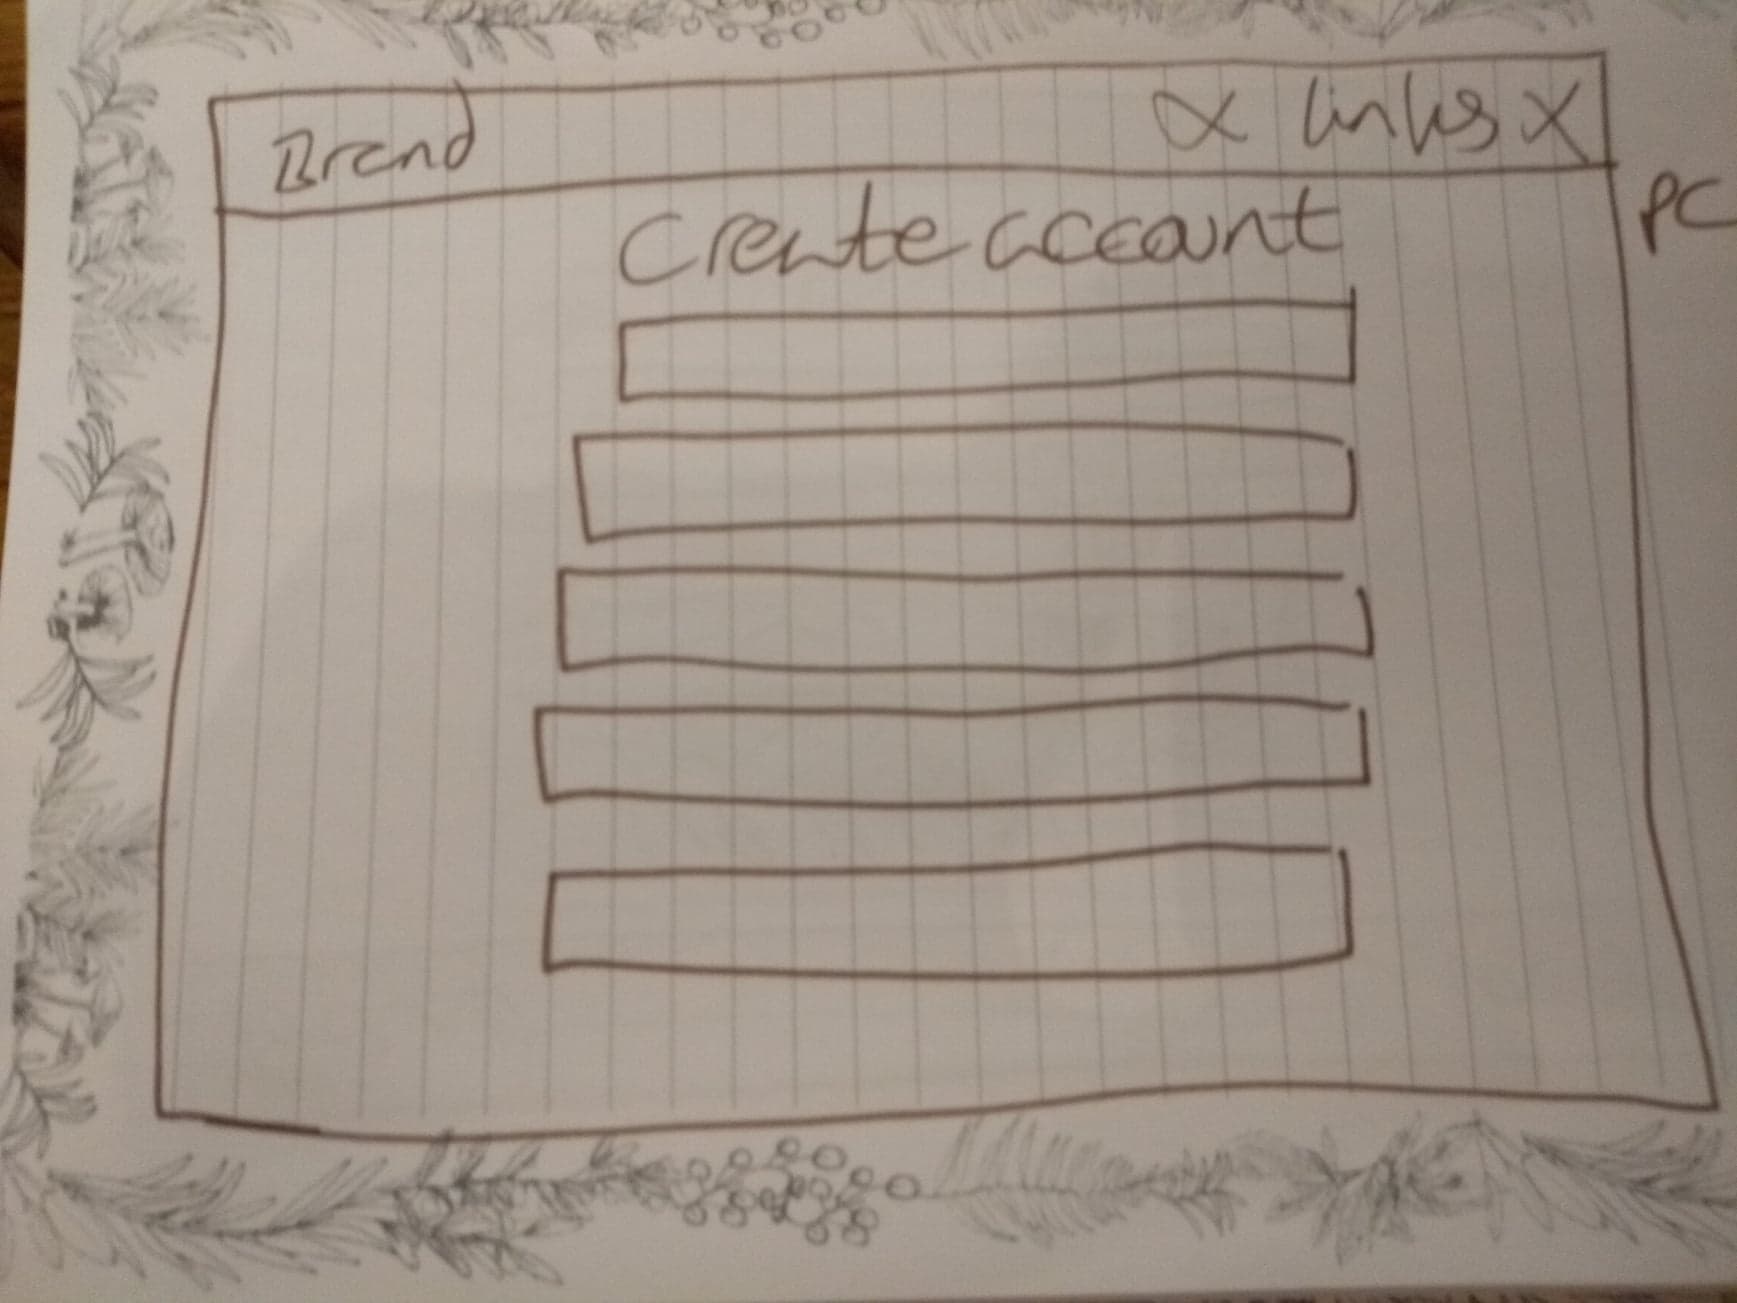 Brand x links x
PC
Create account